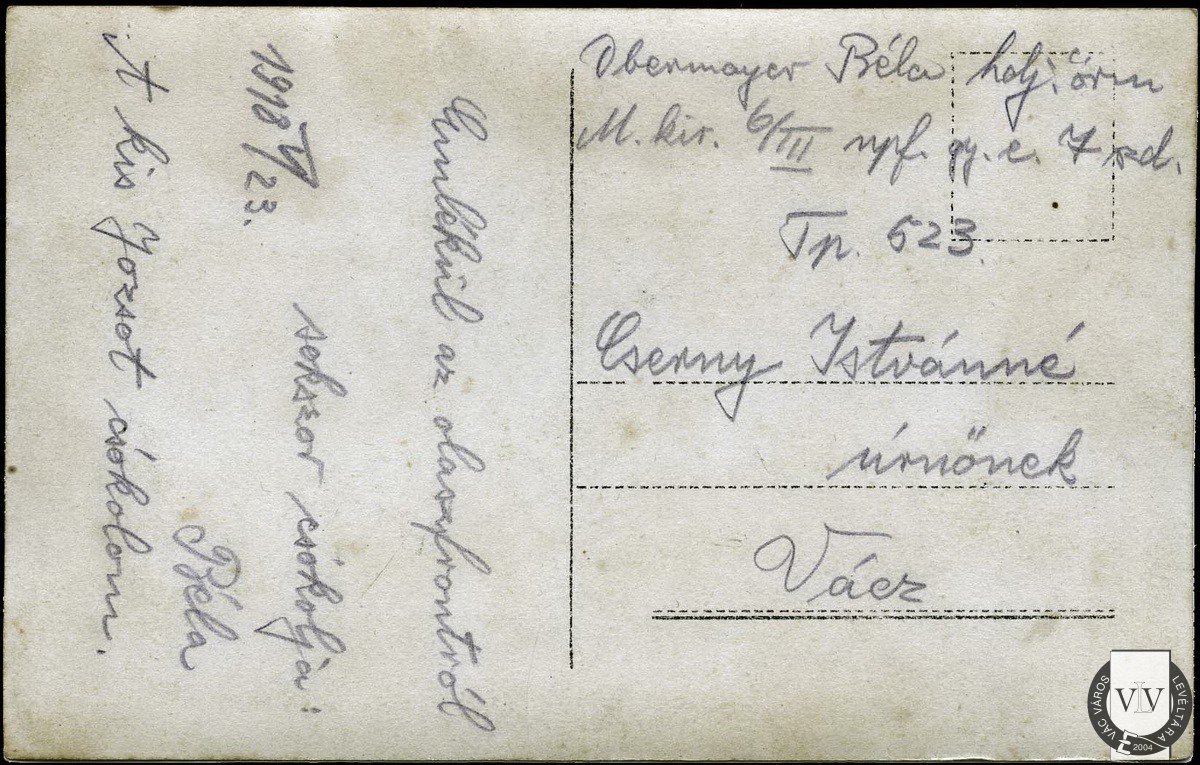 Obermayer Béla holj. őrm
M. kir. 6/III npf. gy. e. 7 szd.
Tp. 523.
Cserny Istvánné
úrnőnek
Vácz
Emlékül az olaszfrontról
sokszor csókolja:
Béla
1918 V/23.
A kis Jozsot csókolom.
VÁC VÁROS LEVÉLTÁRA
VLV
2004